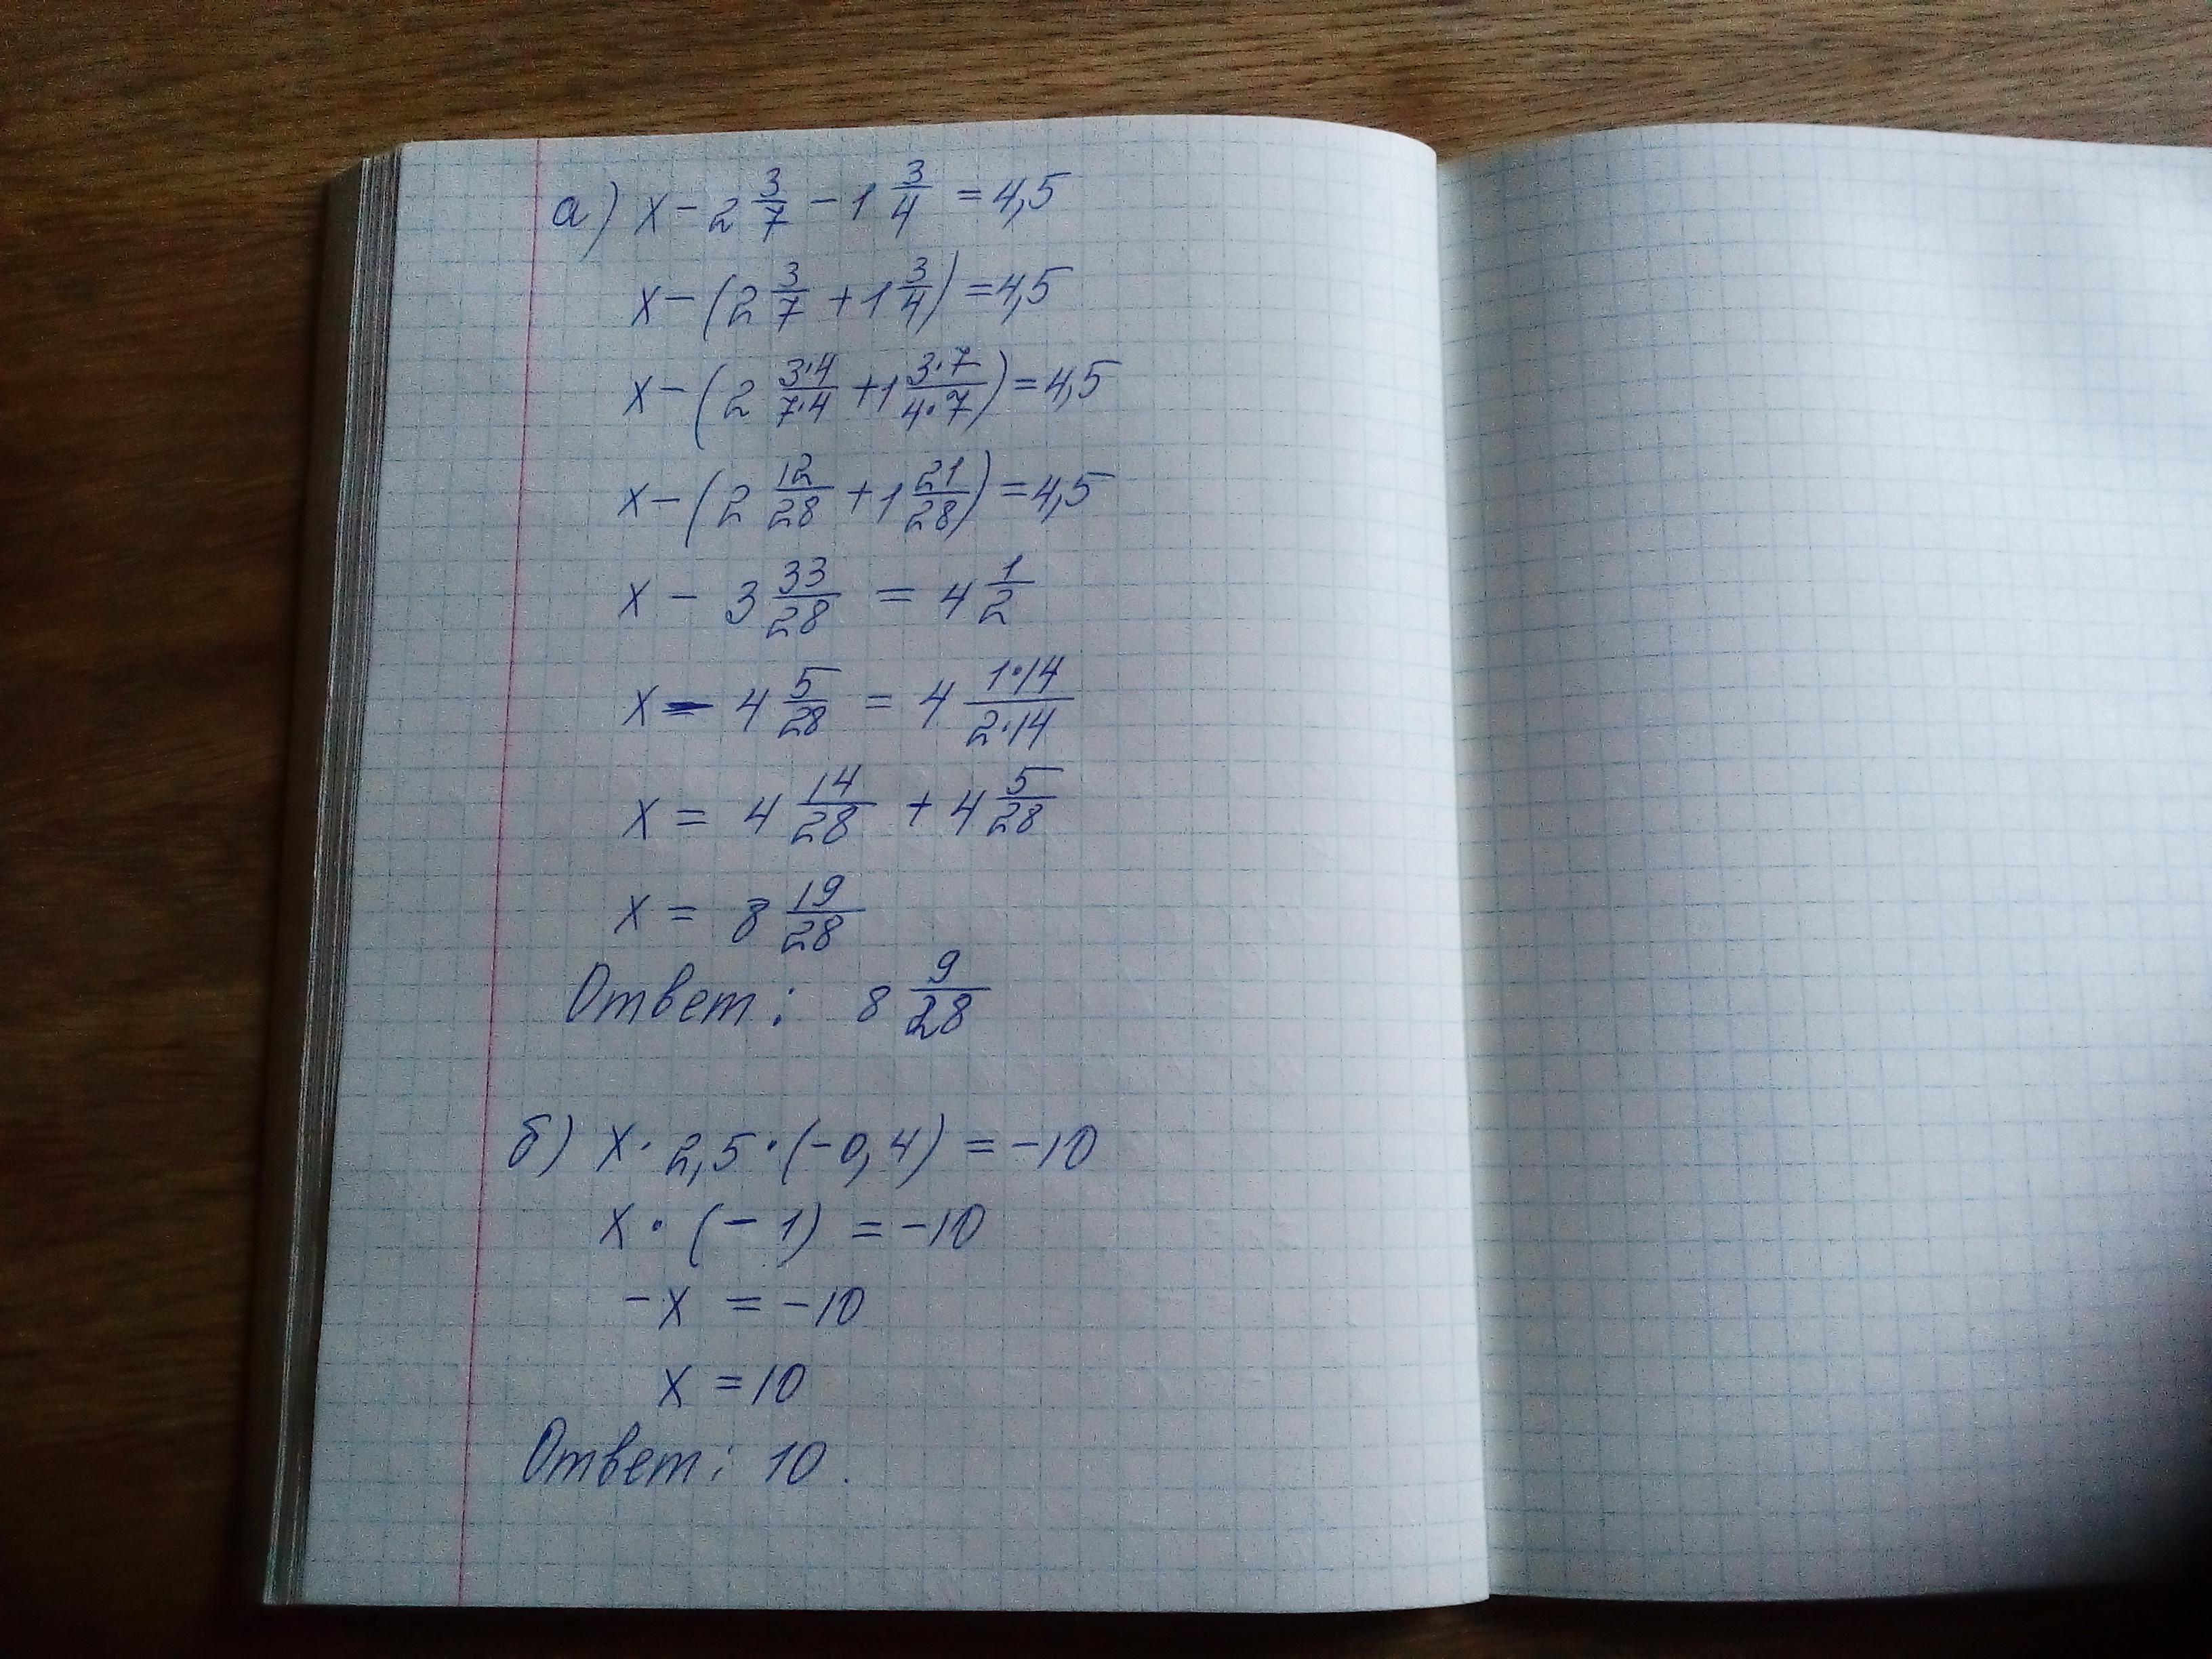 а) x - 2 3/7 - 1 3/4 = 4,5
x - (2 3/7 + 1 3/4) = 4,5
x - (2 3·4/7·4 + 1 3·7/4·7) = 4,5
x - (2 12/28 + 1 21/28) = 4,5
x - 3 33/28 = 4 1/2
x - 4 5/28 = 4 1·14/2·14
x = 4 14/28 + 4 5/28
x = 8 19/28
Ответ: 8 9/28
б) x · 2,5 · (-0,4) = -10
x · (-1) = -10
-x = -10
x = 10
Ответ: 10.